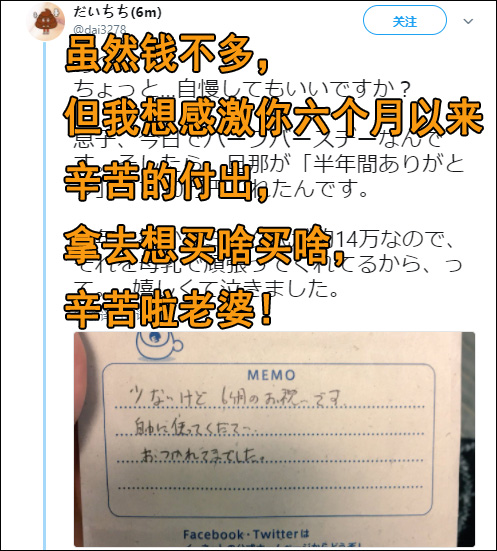 だいちち(6m)
@dai3278
关注
虽然钱不多，
ちょっと...自慢してもいいですか？
但我想感激你六个月以来
息子、今日でハーフバースデーなんで
旦那が「半年間ありがと
辛苦的付出，
れたんです。
拿去想买啥买啥，
14万なので、
それを母乳で頑張ってくれてるから、っ
て。 嬉しくて泣きました。
辛苦啦老婆！
MEMO
少ないけど 6ヶ月のお祝いです
自由に使ってください
おつかれさまでした。
Facebook・Twitterは